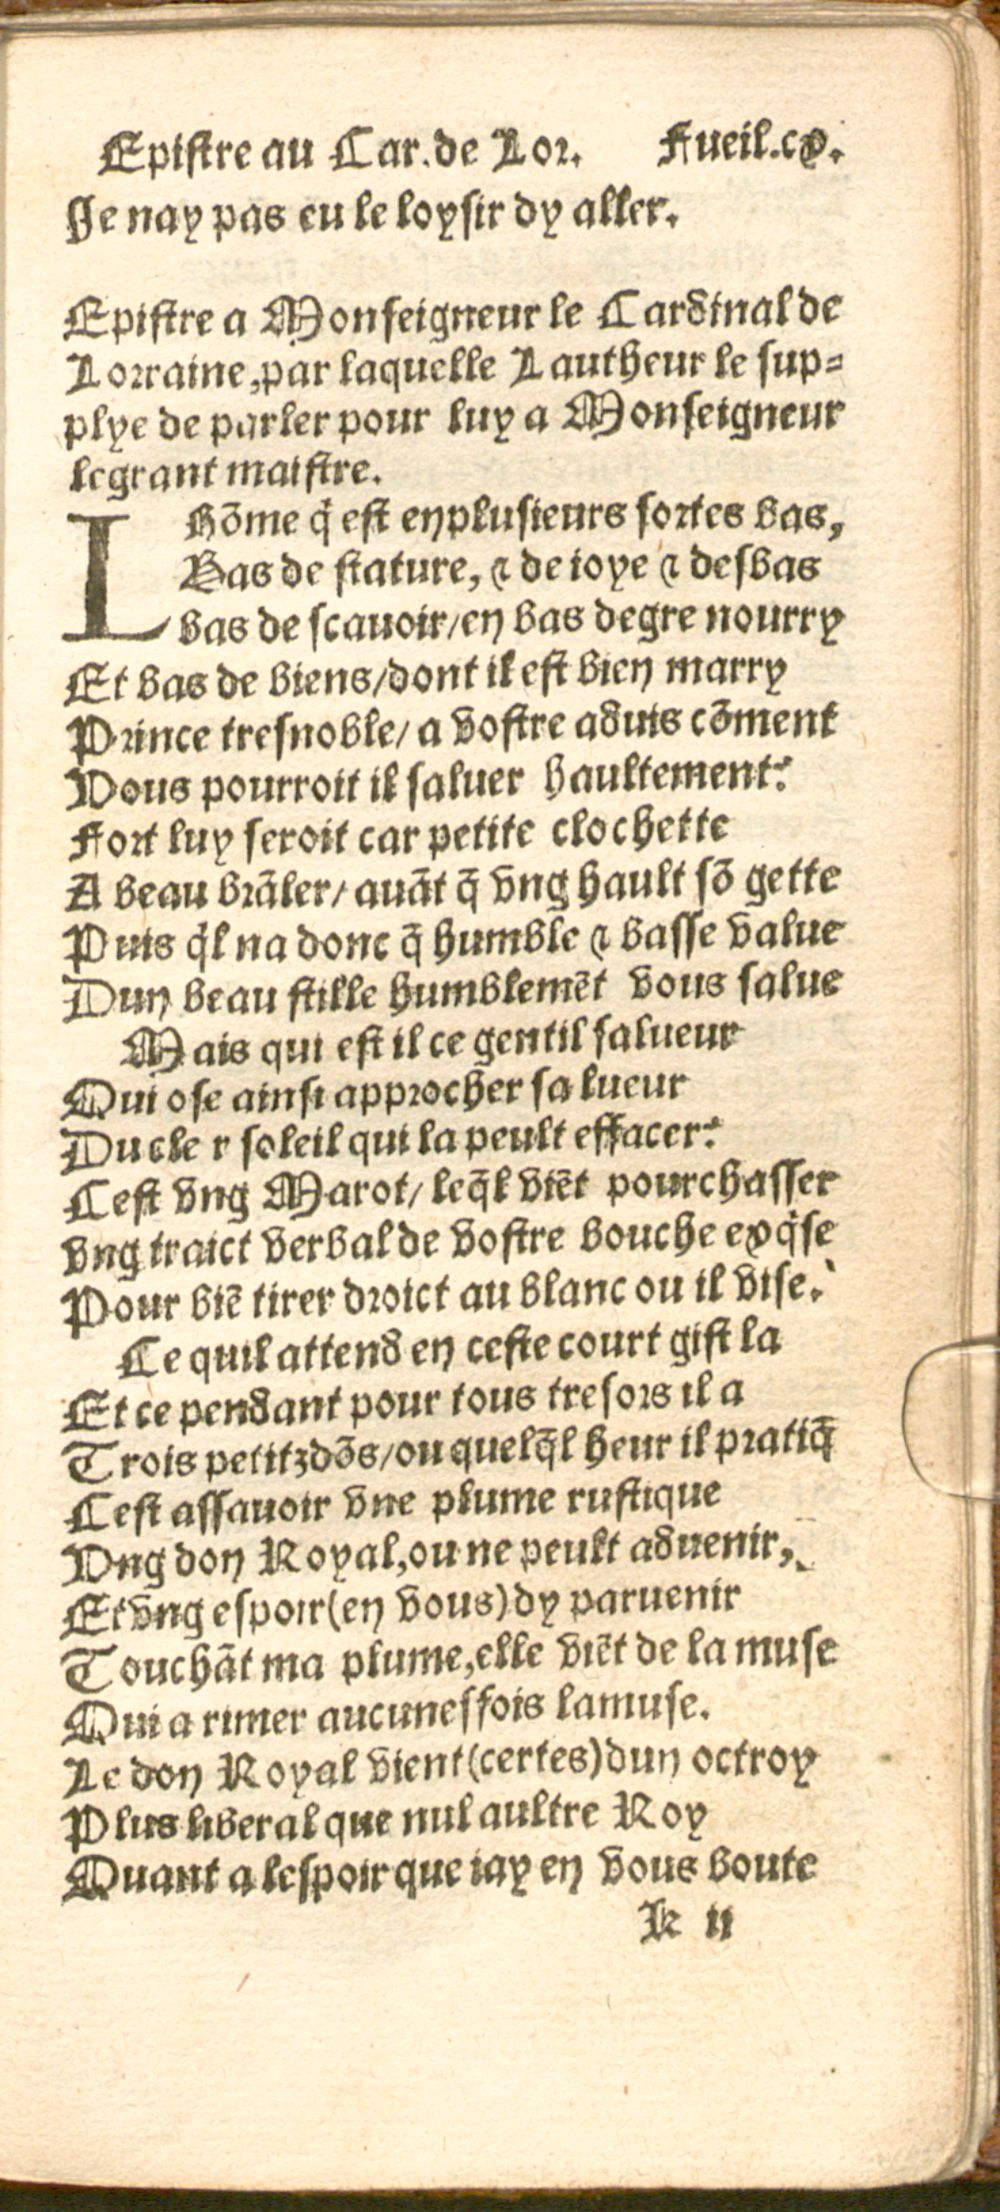 Epistre au Car. de Lor. Fueil.cx.
Je nay pas eu le loysir dy aller.
Epistre a Monseigneur le Cardinal de
Lorraine, par laquelle Lautheur le sup=
plye de parler pour luy a Monseigneur
le grant maistre.
LHõme q̇ est en plusieurs sortes bas,
Bas de stature, ⁊ de ioye ⁊ desbas
bas de scauoir/ en bas degre nourry
Et bas de biens/ dont il est bien marry
Prince tresnoble/ a vostre aduis cõment
Vous pourroit il saluer haultement?
Fort luy seroit car petite clochette
A beau brãler/ auãt q̃ vng hault sõ gette
Puis q̇l na donc q̃ humble ⁊ basse value
Dun beau stille humblemẽt vous salue
Mais qui est il ce gentil salueur
Qui ose ainsi approcher sa lueur
Du cler soleil qui la peult effacer?
Cest vng Marot/ leq̃l viẽt pourchasser
vng traict verbal de vostre bouche exq̇se
Pour biẽ tirer droict au blanc ou il vise.
Ce quil attend en ceste court gist la
Et ce pendant pour tous tresors il a
Trois petitz dõs/ ou quelq̃l heur il pratiq̃
Cest assauoir vne plume rustique
Vng don Royal, ou ne peult aduenir,
Et vng espoir (en vous) dy paruenir
Touchãt ma plume, elle viẽt de la muse
Qui a rimer aucunesfois lamuse.
Le don Royal vient (certes) dun octroy
Plus liberal que nul aultre Roy
Quant a lespoir que iay en vous boute
K ii